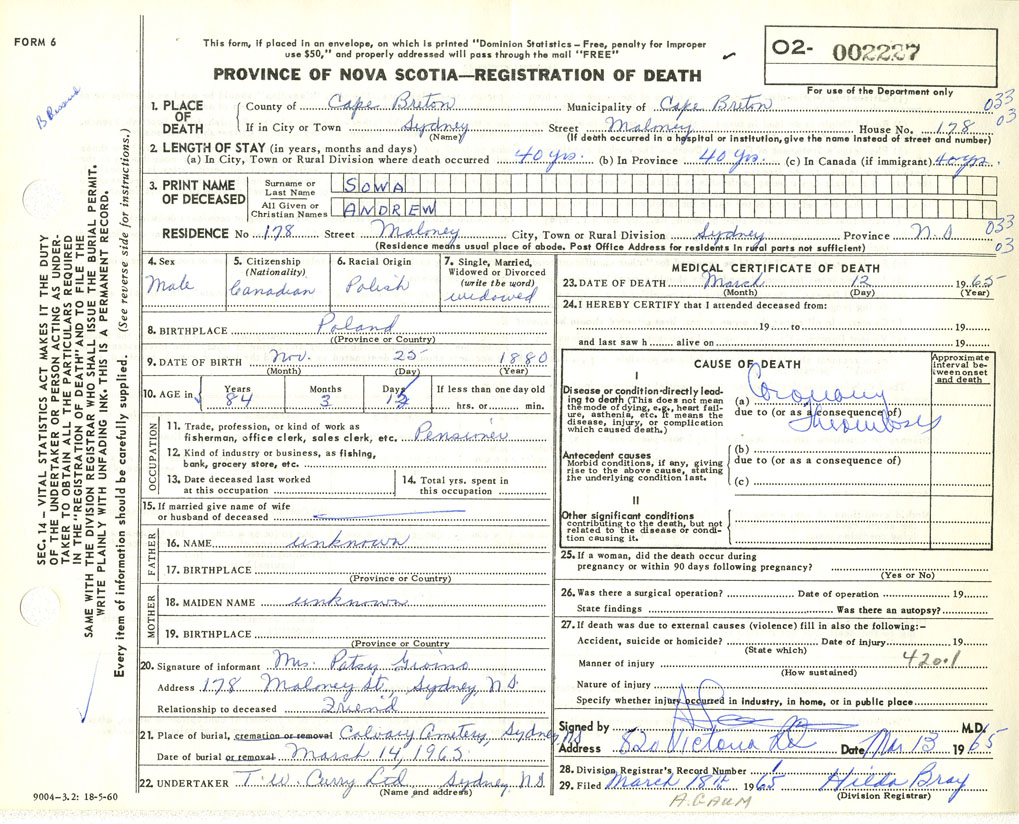 FORM 6
This form, if placed in an envelope, on which is printed "Dominion Statistics – Free, penalty for improper
use $50," and properly addressed will pass through the mail "FREE"
PROVINCE OF NOVA SCOTIA—REGISTRATION OF DEATH
02- 002227
For use of the Department only
SEC. 14 – VITAL STATISTICS ACT MAKES IT THE DUTY
OF THE UNDERTAKER OR PERSON ACTING AS UNDER-
TAKER TO OBTAIN ALL THE PARTICULARS REQUIRED
IN THE "REGISTRATION OF DEATH" AND TO FILE THE
SAME WITH THE DIVISION REGISTRAR WHO SHALL ISSUE THE BURIAL PERMIT.
WRITE PLAINLY WITH UNFADING INK. THIS IS A PERMANENT RECORD.
Every item of information should be carefully supplied. (See reverse side for instructions.)
1. PLACE OF DEATH County of Cape Breton Municipality of Cape Breton 033
If in City or Town Sydney Street Maloney House No. 178 03
(Name) (If death occurred in a hospital or institution, give the name instead of street and number)
2. LENGTH OF STAY (in years, months and days)
(a) In City, Town or Rural Division where death occurred 40 yrs. (b) In Province 40 yrs. (c) In Canada (if immigrant) 40 yrs.
3. PRINT NAME OF DECEASED Surname or Last Name SOWA
All Given or Christian Names ANDREW
RESIDENCE No 178 Street Maloney City, Town or Rural Division Sydney Province N.S 033
(Residence means usual place of abode. Post Office Address for residents in rural parts not sufficient) 03
4. Sex Male
5. Citizenship (Nationality) Canadian
6. Racial Origin Polish
7. Single, Married, Widowed or Divorced (write the word) widowed
8. BIRTHPLACE Poland
((Province or Country)
9. DATE OF BIRTH Nov. 25 1880
(Month) (Day) (Year)
10. AGE in Years 84 Months 3 Days If less than one day old hrs. or min.
OCCUPATION
11. Trade, profession, or kind of work as
fisherman, office clerk, sales clerk, etc. Pensioner
12. Kind of industry or business, as fishing,
bank, grocery store, etc.
13. Date deceased last worked
at this occupation
14. Total yrs. spent in
this occupation
15. If married give name of wife
or husband of deceased
FATHER
16. NAME unknown
17. BIRTHPLACE
(Province or Country)
MOTHER
18. MAIDEN NAME unknown
19. BIRTHPLACE
(Province or Country
20. Signature of informant Mrs. Patsy
Address 178 Maloney St., Sydney, N.S.
Relationship to deceased Friend
21. Place of burial, cremation or removal Calvary Cemetery, Sydney, NS
Date of burial or removal March 14, 1965
22. UNDERTAKER T.W. Curry Ltd Sydney NS
(Name and address)
9004-3.2: 18-5-60
MEDICAL CERTIFICATE OF DEATH
23. DATE OF DEATH March 12 1965
(Month) (Day) (Year)
24. I HEREBY CERTIFY that I attended deceased from:
19 to 19
and last saw h alive on 19
CAUSE OF DEATH
Approximate interval between onset and death
I
Disease or condition directly lead-
ing to death (This does not mean
the mode of dying, e.g., heart fail-
ure, asthenia, etc. It means the
disease, injury, or complication
which caused death.)
(a) Coronary
due to (or as a consequence of)
Thrombosis
Antecedent causes
Morbid conditions, if any, giving
rise to the above cause, stating
the underlying condition last.
(b)
due to (or as a consequence of)
(c)
II
Other significant conditions
contributing to the death, but not
related to the disease or condi-
tion causing it.
25. If a woman, did the death occur during
pregnancy or within 90 days following pregnancy?
(Yes or No)
26. Was there a surgical operation? Date of operation 19
State findings Was there an autopsy?
27. If death was due to external causes (violence) fill in also the following:–
Accident, suicide or homicide? Date of injury 19
(State which)
Manner of injury 420.1
(How sustained)
Nature of injury
Specify whether injury occurred in industry, in home, or in public place
Signed by M.D.
Address 820 Victoria Rd Date Mar 13 1965
28. Division Registrar's Record Number
29. Filed March 18th 1965 Hilda Bray
(Division Registrar)
A. GAUM